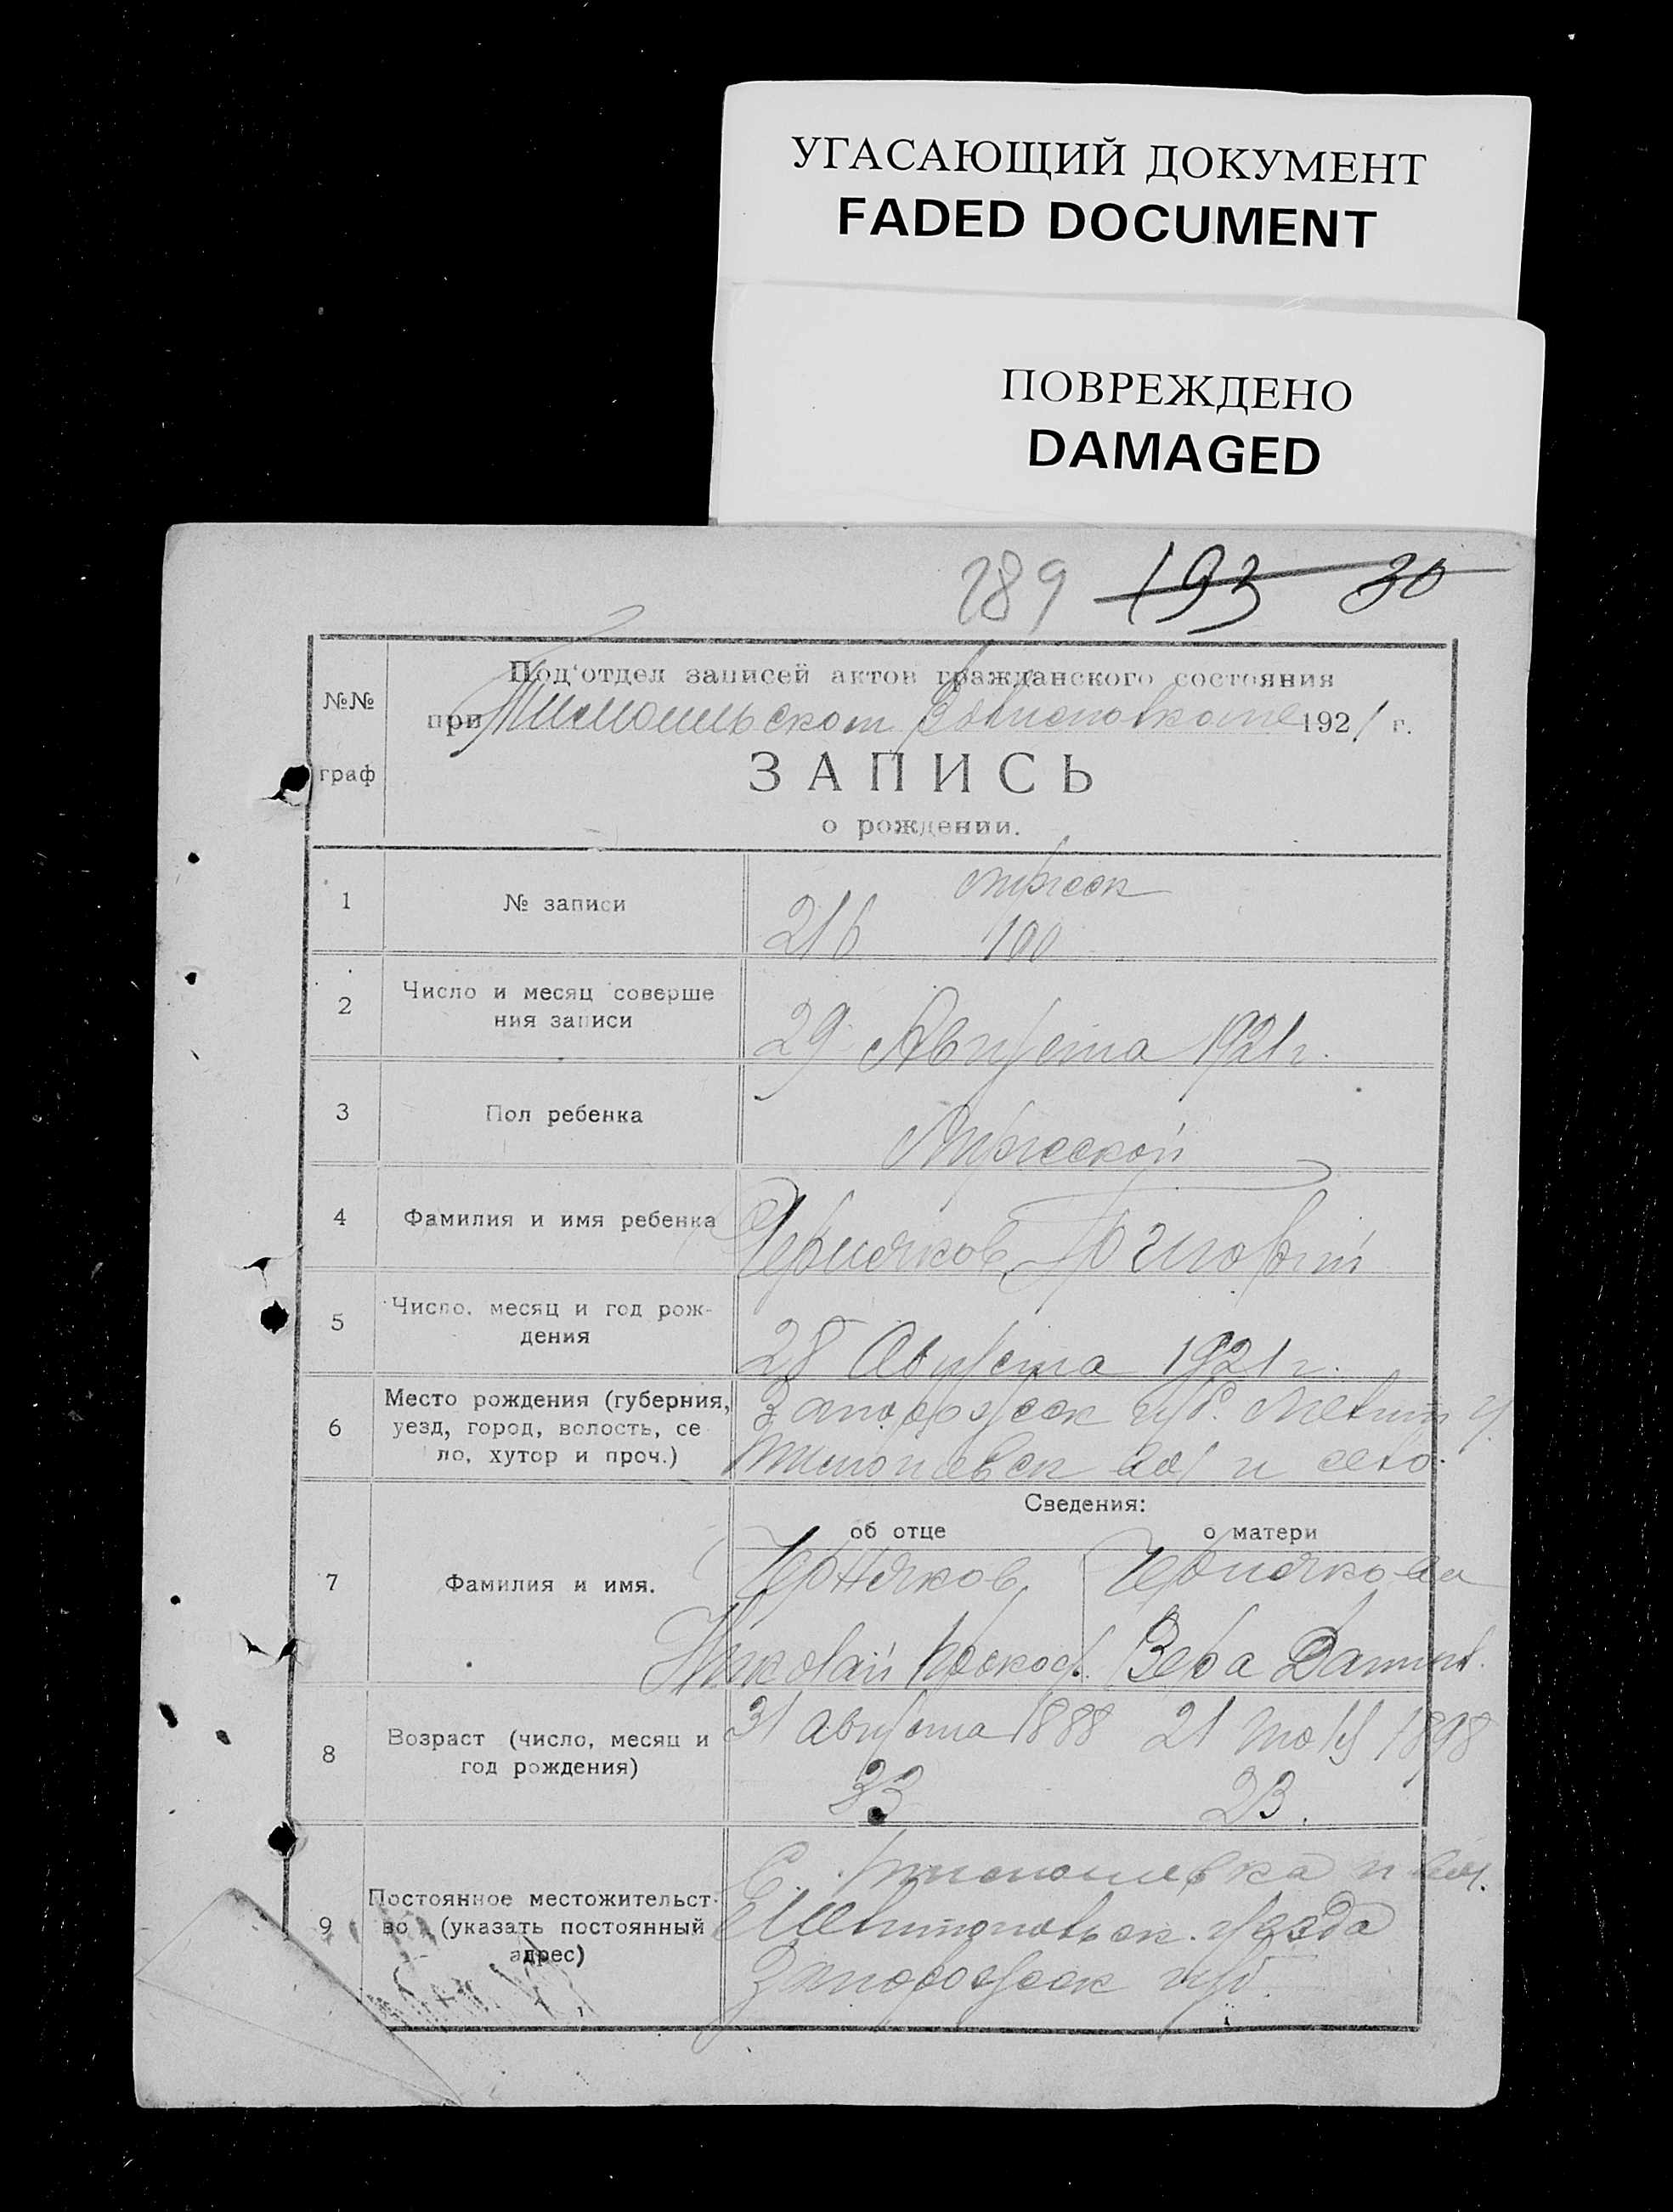 УГАСАЮЩИЙ ДОКУМЕНТ
FADED DOCUMENT
ПОВРЕЖДЕНО
DAMAGED
289 193 30
№№
граф
Под'отдел записей актов гражданского состояния
при 1921 г.
ЗАПИСЬ
о рождении.
1 № записи
мужеск
216 100
2 Число и месяц соверше
ния записи
29 Августа 1921 г.
3 Пол ребенка
Мужеской
4 Фамилия и имя ребенка
Черняков Григорий
5 Число, месяц и год рож-
дения
28 Августа 1921 г.
6 Место рождения (губерния,
уезд, город, волость, се
ло, хутор и проч.)
Запорожск губ. Мелит у.
вол и село.
Сведения:
об отце о матери
7 Фамилия и имя.
Черняков Чернякова
Николай Вера Данил.
8 Возраст (число, месяц и
год рождения)
31 августа 1888 21 1898
33 23.
9 Постоянное местожительст-
во (указать постоянный
адрес)
С. и вол.
Мелитопольск. уезда
Запорожск губ.